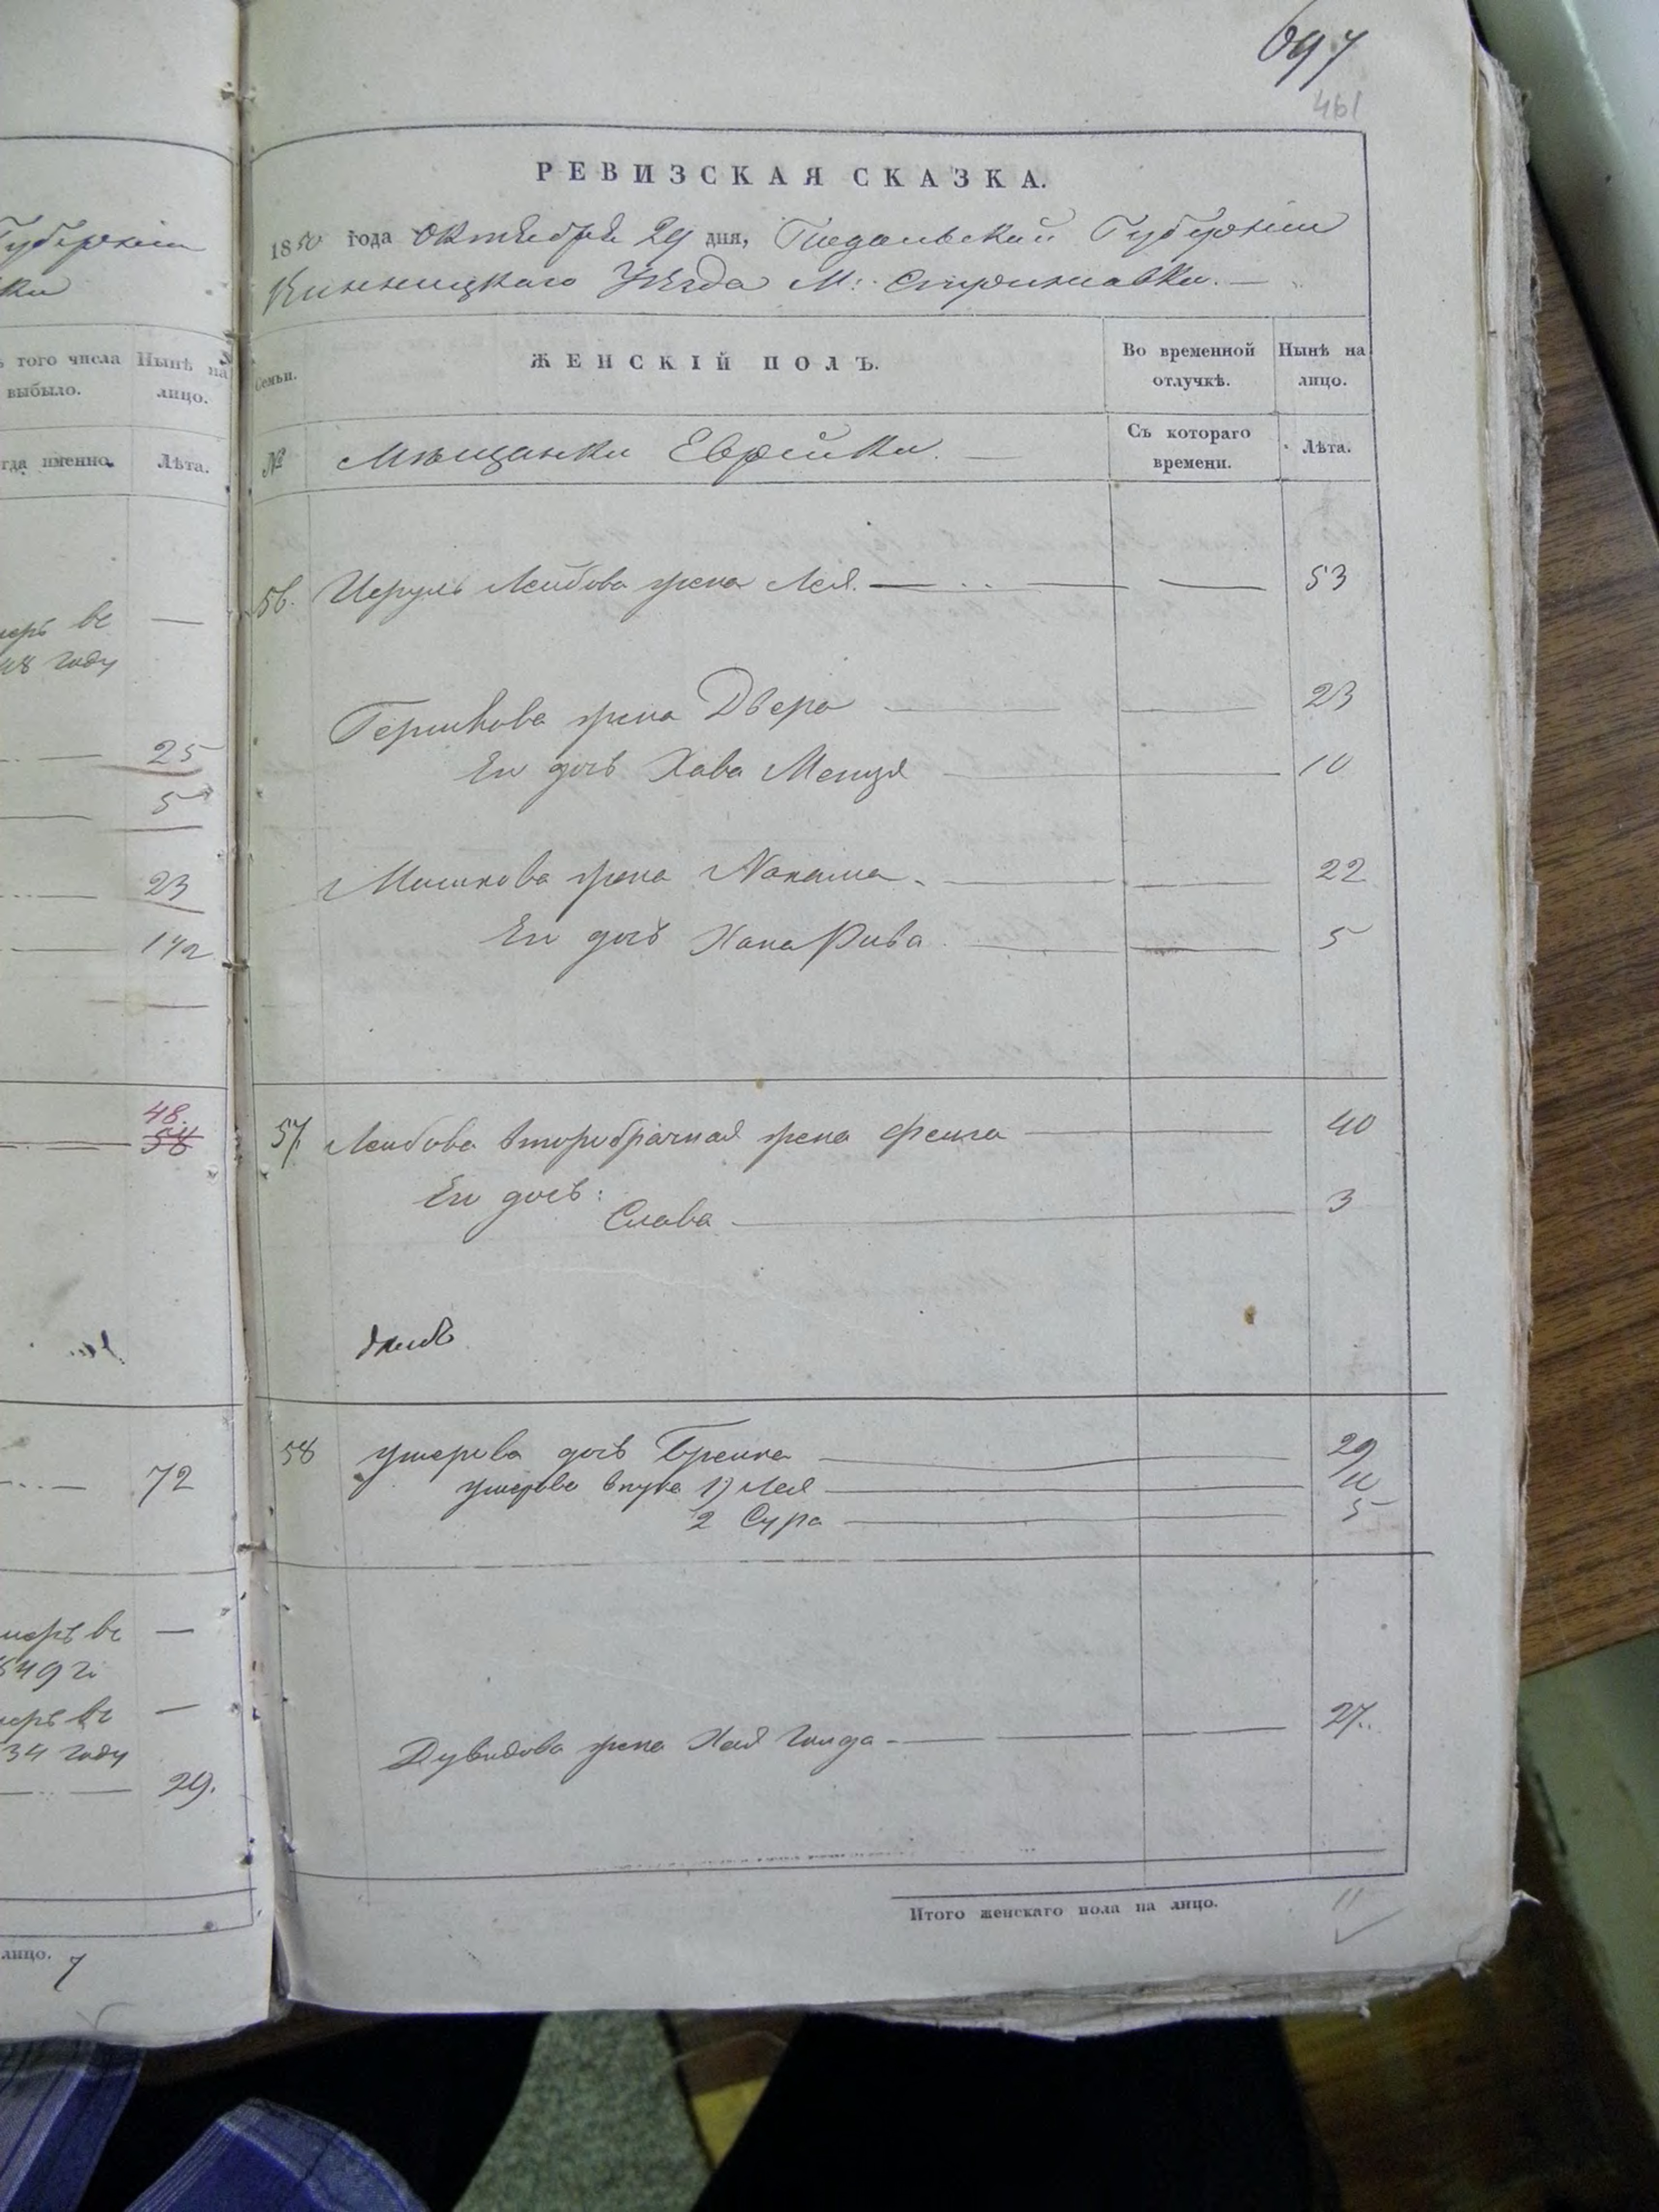 697
461
Губерніи
ки
того числа
выбыло.
Нынѣ на
лицо.
гда именно.
Лѣта.
меръ въ —
48 году
25
5
23
1/2
48.
58
72
меръ въ —
849 г.
меръ въ —
34 году
29.
лицо. 7
РЕВИЗСКАЯ СКАЗКА.
1850 года Октября 29 дня, Подольской Губерніи
Винницкаго Уѣзда М: Стрижавки. —
Семьи.
ЖЕНСКІЙ ПОЛЪ.
Во временной отлучкѣ.
Нынѣ на лицо.
№
Мѣщанки Еврейки. —
Съ котораго времени.
Лѣта.
56. Лейбова жена Лея. — 53
Гершкова жена Двера — 23
Ея дочь Хава — 10
Мошкова жена — 22
Ея дочь Хана Рива — 5
57 Лейбова второбрачная жена Фейга — 40
Ея дочь:
Слава — 3
58 Умерова дочь Брейна — 29
внуки 1) Лея — 10
2 Сура — 5
Дувидова жена Хая Голда — 27..
Итого женскаго пола на лицо. 11